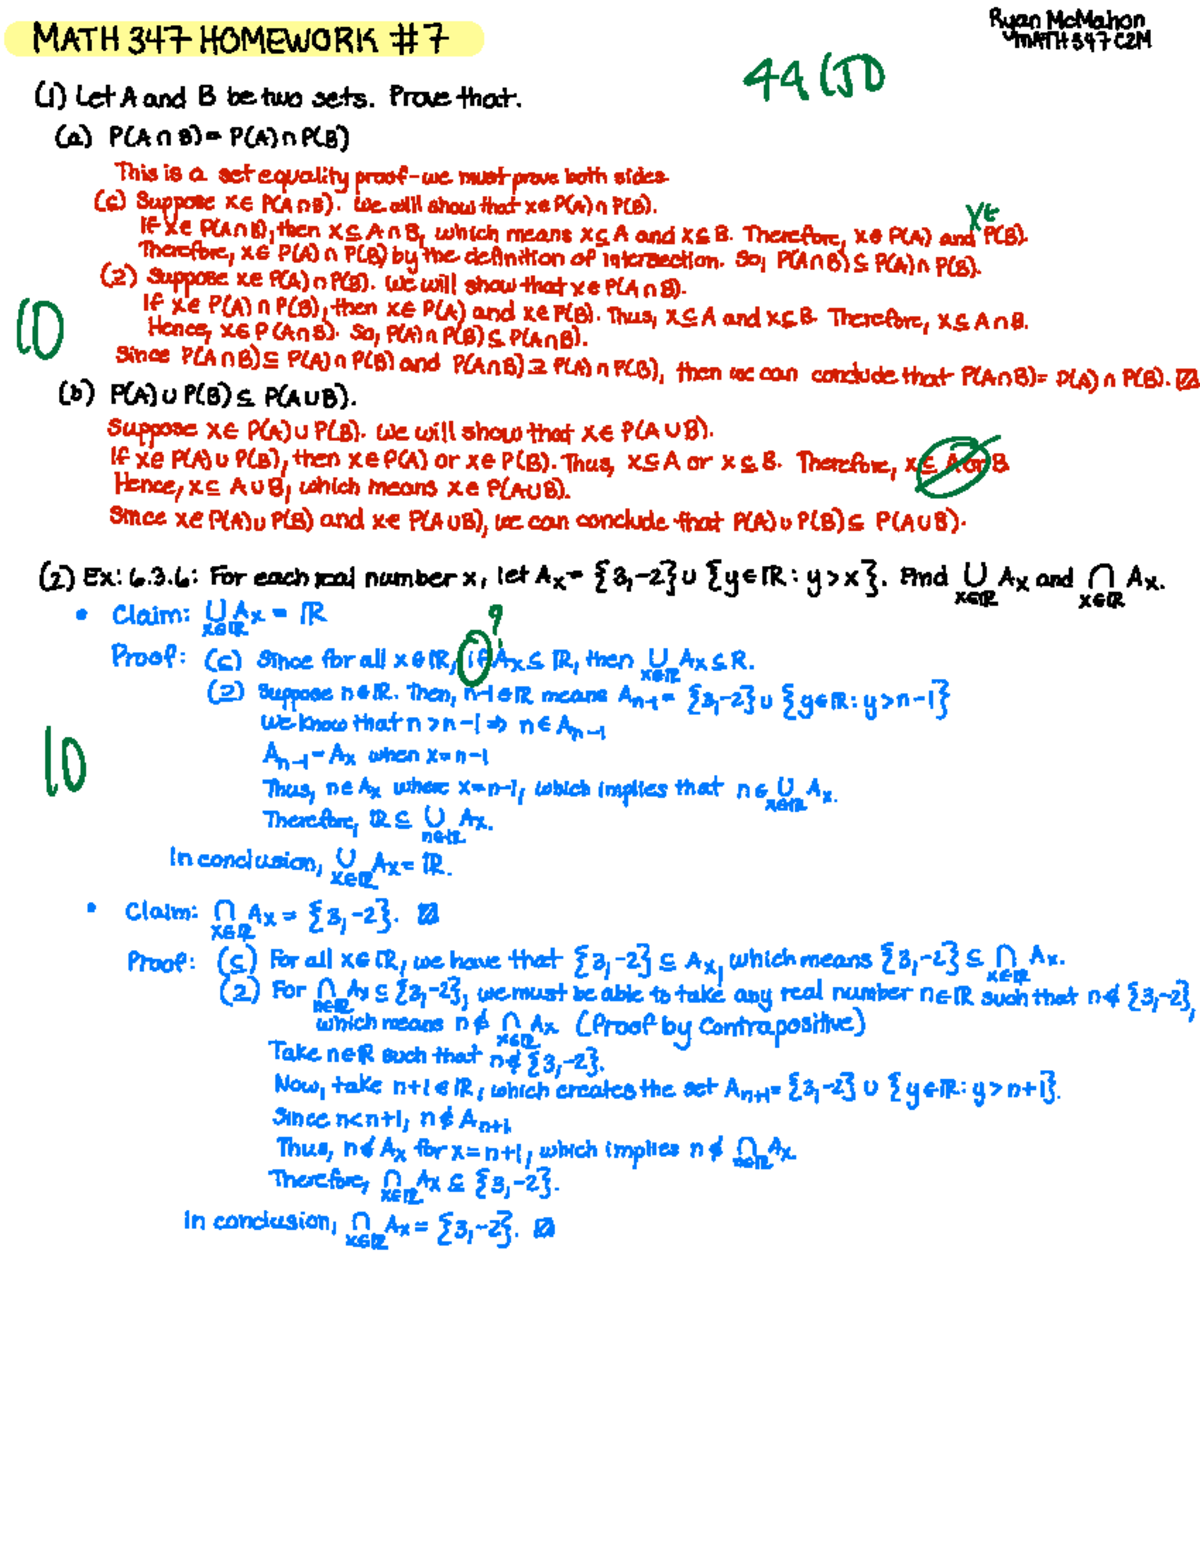 MATH 347 HOMEWORK #7
Ryan McMahon
MATH 347 C2M
44/50
(1) Let A and B be two sets. Prove that.
(a) P(A∩B) = P(A)∩P(B)
This is a set equality proof - we must prove both sides
(⊆) Suppose x∈P(A∩B). We will show that x∈P(A)∩P(B).
x∈
If x∈P(A∩B), then x⊆A∩B, which means x⊆A and x⊆B. Therefore, x∈P(A) and P(B).
Therefore, x∈P(A)∩P(B) by the definition of intersection. So, P(A∩B)⊆P(A)∩P(B).
(⊇) Suppose x∈P(A)∩P(B). We will show that x∈P(A∩B).
If x∈P(A)∩P(B), then x∈P(A) and x∈P(B). Thus, x⊆A and x⊆B. Therefore, x⊆A∩B.
10
Hence, x∈P(A∩B). So, P(A)∩P(B)⊆P(A∩B).
Since P(A∩B)⊆P(A)∩P(B) and P(A∩B)⊇P(A)∩P(B), then we can conclude that P(A∩B)=P(A)∩P(B).
(b) P(A)∪P(B)⊆P(A∪B).
Suppose x∈P(A)∪P(B). We will show that x∈P(A∪B).
If x∈P(A)∪P(B), then x∈P(A) or x∈P(B). Thus, x⊆A or x⊆B. Therefore, x⊆A or B
Hence, x⊆A∪B, which means x∈P(A∪B).
Since x∈P(A)∪P(B) and x∈P(A∪B), we can conclude that P(A)∪P(B)⊆P(A∪B).
(2) Ex: 6.3.6: For each real number x, let Aₓ = {3,-2}∪{y∈ℝ: y>x}. Find ∪ Aₓ and ∩ Aₓ.
x∈ℝ x∈ℝ
• Claim: ∪ Aₓ = ℝ
x∈ℝ
?
Proof: (⊆) Since for all x∈ℝ, if Aₓ⊆ℝ, then ∪ Aₓ⊆R.
x∈ℝ
(⊇) Suppose n∈ℝ. Then, n-1∈ℝ means Aₙ₋₁ = {3,-2}∪{y∈ℝ: y>n-1}
We know that n>n-1 ⇒ n∈Aₙ₋₁
10
Aₙ₋₁ = Aₓ when x=n-1
Thus, n∈Aₓ where x=n-1, which implies that n∈∪ Aₓ.
x∈ℝ
Therefore, ℝ⊆∪ Aₓ.
n∈ℝ
In conclusion, ∪ Aₓ = ℝ.
x∈ℝ
• Claim: ∩ Aₓ = {3,-2}.
x∈ℝ
Proof: (⊆) For all x∈ℝ, we have that {3,-2}⊆Aₓ, which means {3,-2}⊆∩ Aₓ.
x∈ℝ
(⊇) For ∩ Aₓ⊆{3,-2}, we must be able to take any real number n∈ℝ such that n∉{3,-2},
n∈ℝ
which means n∉∩ Aₓ (Proof by Contrapositive)
x∈ℝ
Take n∈ℝ such that n∉{3,-2}.
Now, take n+1∈ℝ, which creates the set Aₙ₊₁ = {3,-2}∪{y∈ℝ: y>n+1}.
Since n<n+1, n∉Aₙ₊₁
Thus, n∉Aₓ for x=n+1, which implies n∉∩ Aₓ.
n∈ℝ
Therefore, ∩ Aₓ⊆{3,-2}.
x∈ℝ
In conclusion, ∩ Aₓ = {3,-2}.
x∈ℝ